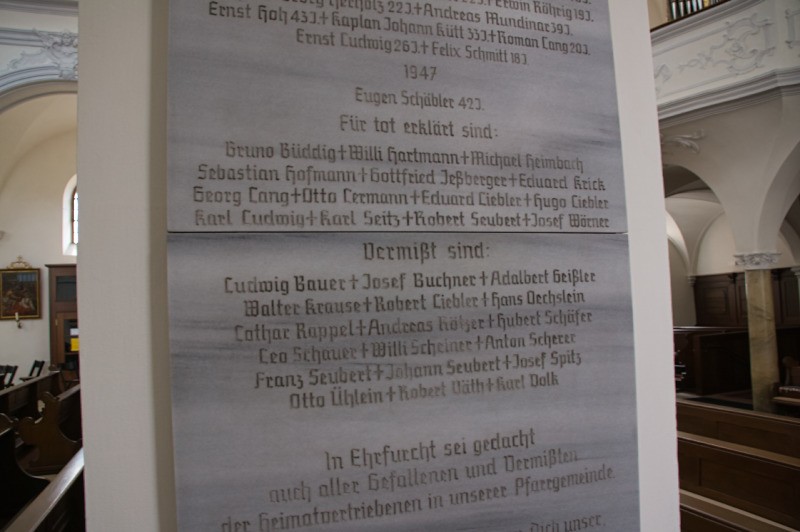 Herholz 22J.✝Andreas Mundinar 39J. Erwin Röhrig 19J.
Ernst Hoh 43J.✝Kaplan Johann Kütt 33J.✝Roman Lang 20J.
Ernst Ludwig 26J.✝Felix Schmitt 18J.
1947
Eugen Schäbler 42J.
Für tot erklärt sind:
Bruno Büddig✝Willi Hartmann✝Michael Heimbach
Sebastian Hofmann✝Gottfried Jeßberger✝Eduard Krick
Georg Lang✝Otto Lermann✝Eduard Liebler✝Hugo Liebler
Karl Ludwig✝Karl Seitz✝Robert Seubert✝Josef Wörner
Vermißt sind:
Ludwig Bauer✝Josef Buchner✝Adalbert Geißler
Walter Krause✝Robert Liebler✝Hans Oechslein
Lothar Rappel✝Andreas Rötzer✝Hubert Schäfer
Leo Schauer✝Willi Scheiner✝Anton Scherer
Franz Seubert✝Johann Seubert✝Josef Spitz
Otto Ühlein✝Robert Väth✝Karl Volk
In Ehrfurcht sei gedacht
auch aller Gefallenen und Vermißten
der Heimatvertriebenen in unserer Pfarrgemeinde.
Dich unser,